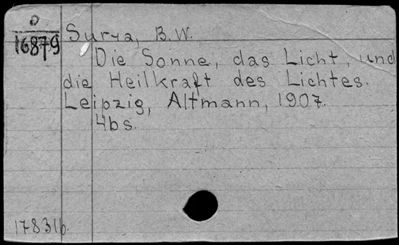 O
16879
Surya, B.W.
Die Sonne, das Licht, und
die Heilkraft des Lichtes.
Leipzig, Altmann, 1907.
4bs.
17831b.